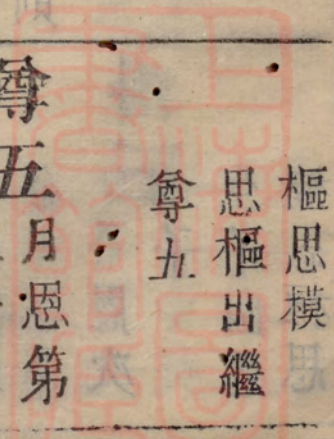 樞思模
思樞出繼
尊九
尊五
月恩第